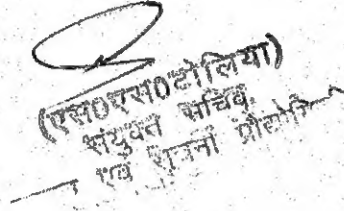 (एस०एस०टोलिया)
संयुक्त सचिव,
एवं सूचना